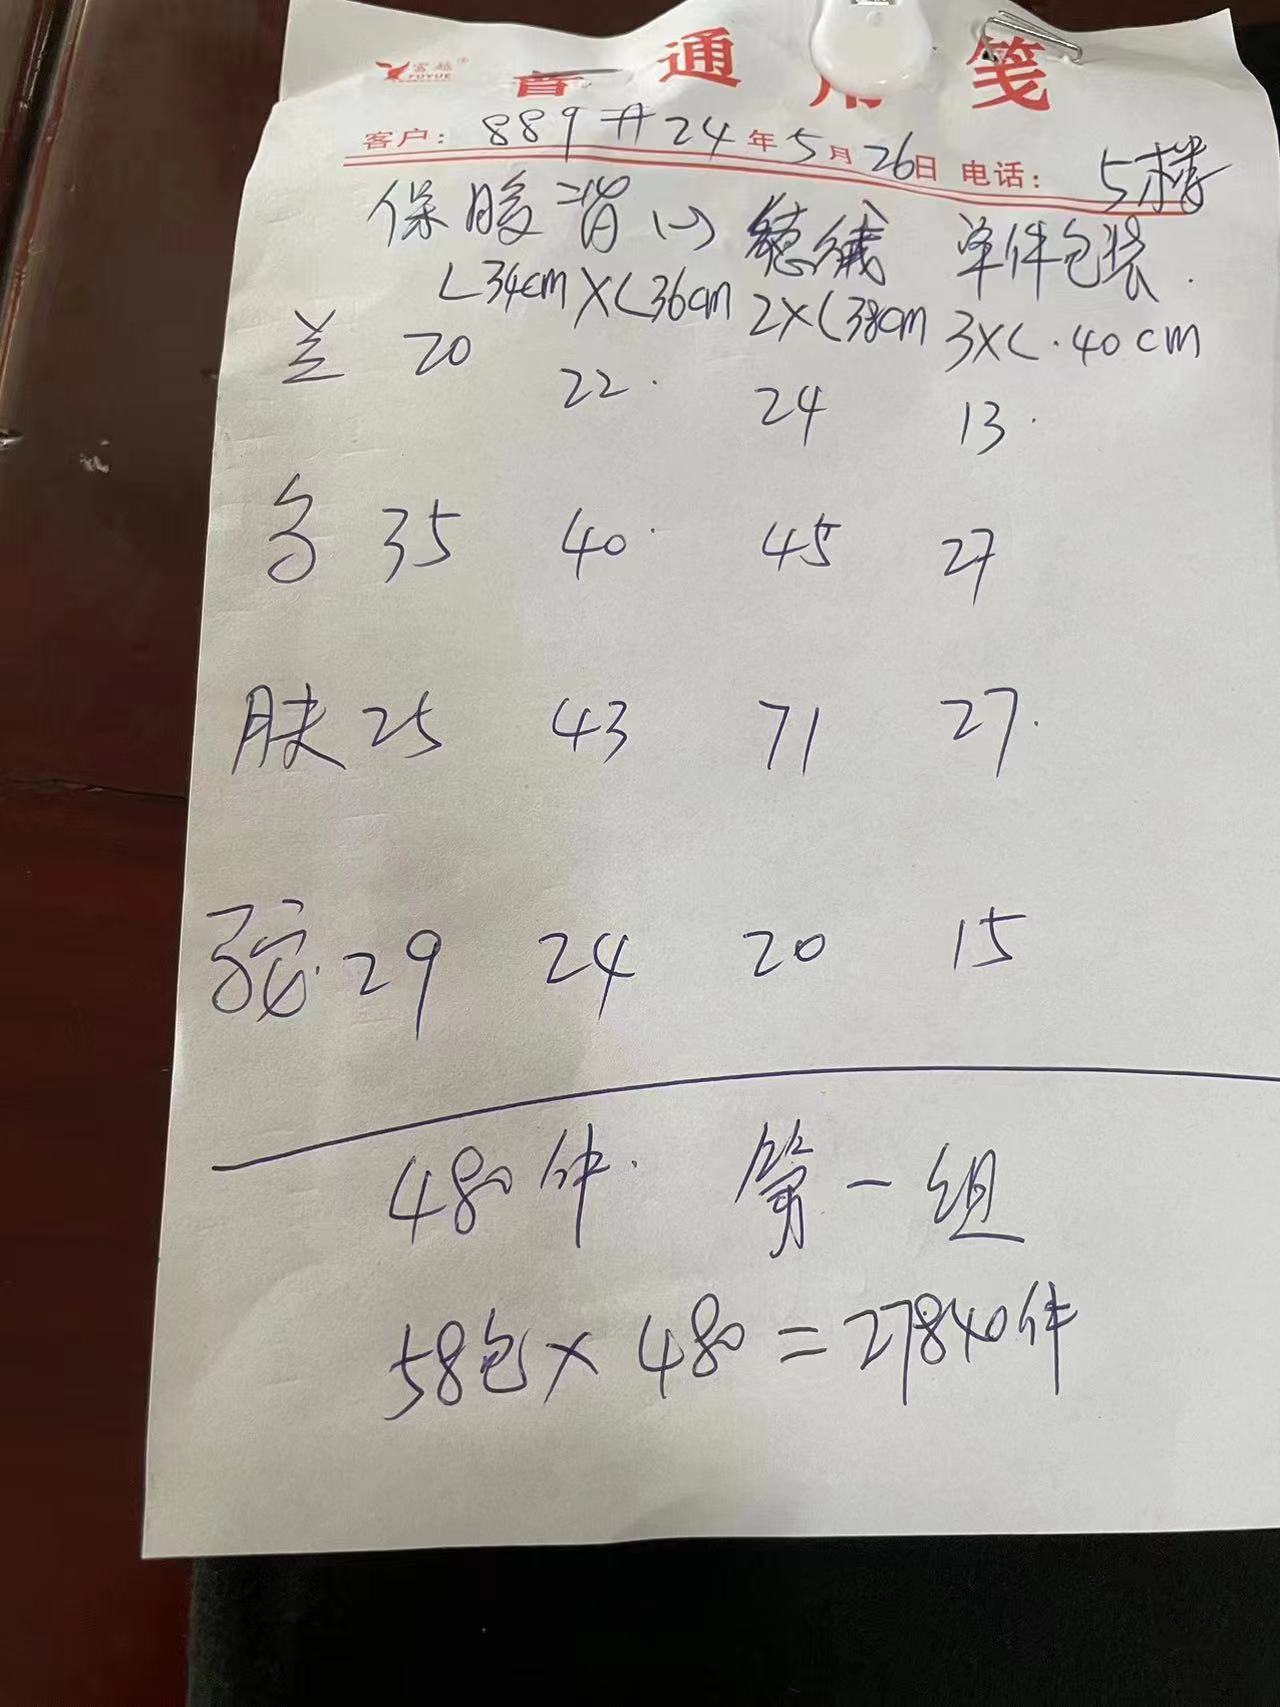 富越® FUYUE
普通用笺
客户: 889# 24年5月26日 电话: 5楼
保暖背心 德绒 单件包装.
L34cm XL36cm 2XL38cm 3XL.40cm
兰 20 22. 24 13.
35 40. 45 27
肤 25 43 71 27.
驼. 29 24 20 15
480件. 第一组
58包×480=27840件